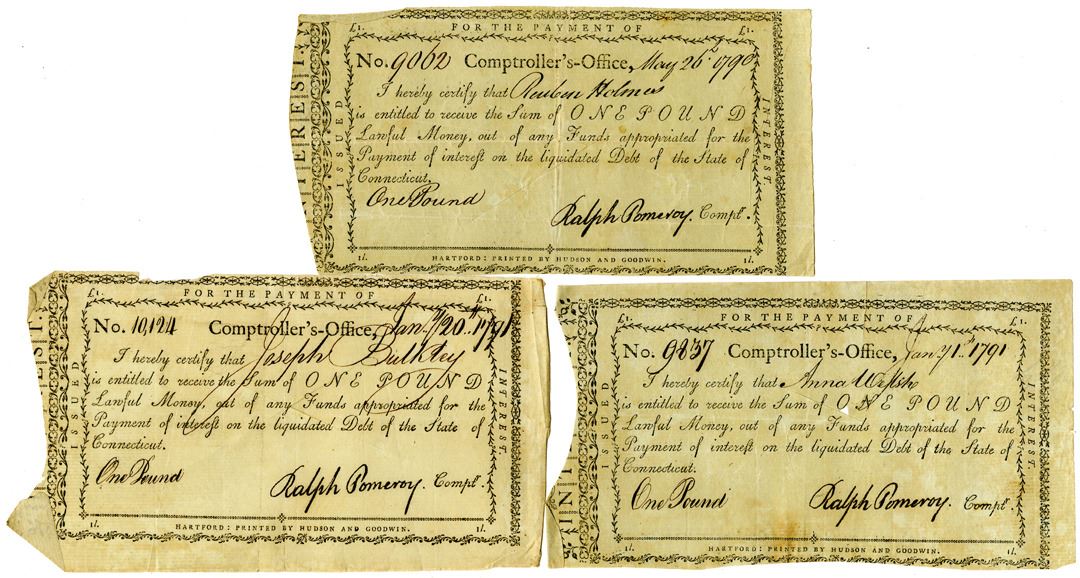 £1. FOR THE PAYMENT OF £1.
ISSUED
INTEREST.
TEREST.
No. 9062 Comptroller's-Office, May 26th 1790
I hereby certify that Reuben Holmes
is entitled to receive the Sum of ONE POUND
Lawful Money, out of any Funds appropriated for the
Payment of interest on the liquidated Debt of the State of
Connecticut.
One Pound
Ralph Pomeroy. Comptr.
1l. HARTFORD: PRINTED BY HUDSON AND GOODWIN. 1l.
£1. FOR THE PAYMENT OF £1.
ISSUED
INTEREST.
No. 10,124 Comptroller's-Office, Jany 20th 1791
I hereby certify that Joseph Bulkley
is entitled to receive the Sum of ONE POUND
Lawful Money, out of any Funds appropriated for the
Payment of interest on the liquidated Debt of the State of
Connecticut.
One Pound
Ralph Pomeroy. Comptr.
1l. HARTFORD: PRINTED BY HUDSON AND GOODWIN. 1l.
£1. FOR THE PAYMENT OF £1.
ISSUED
INTEREST.
No. 9837 Comptroller's-Office, Jany 1st 1791
I hereby certify that Anna
is entitled to receive the Sum of ONE POUND
Lawful Money, out of any Funds appropriated for the
Payment of interest on the liquidated Debt of the State of
Connecticut.
One Pound
Ralph Pomeroy. Comptr.
1l. HARTFORD: PRINTED BY HUDSON AND GOODWIN. 1l.